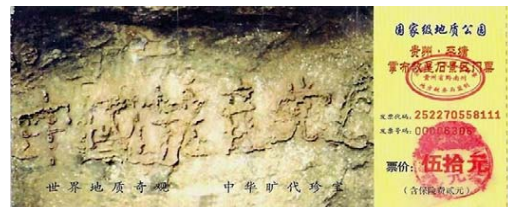 中國共產党
世界地质奇观 中华旷代珍宝
国家级地质公园
贵州·平塘
掌布藏字石景区门票
贵州省黔南州
发票代码: 252270558111
发票号码: 00006306
票价: 伍拾元
(含保险费贰元)